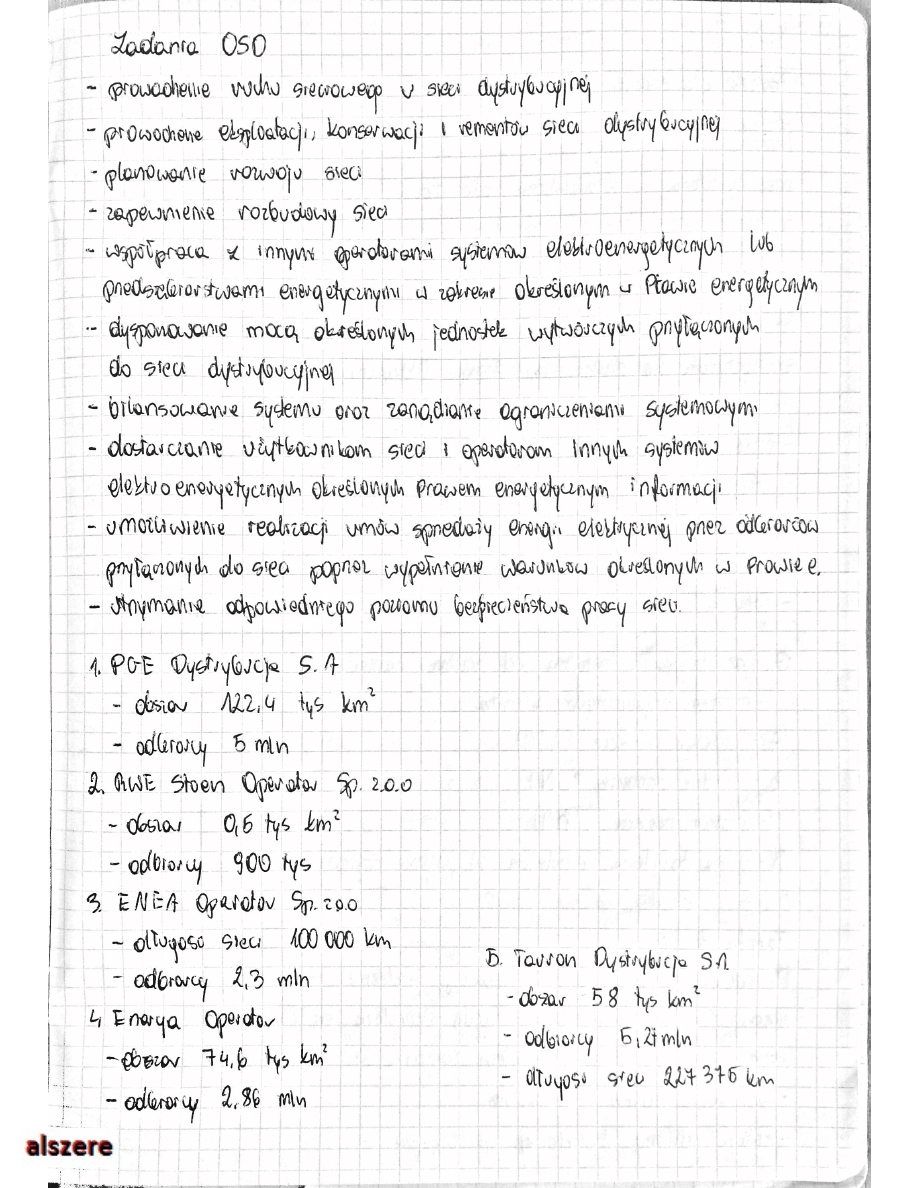 Zadania OSO
- prowadzenie ruchu sieciowego w sieci dystrybucyjnej
- prowadzenie eksploatacji, konserwacji i remontów sieci dystrybucyjnej
- planowanie rozwoju sieci
- zapewnienie rozbudowy sieci
- współpraca z innymi operatorami systemów elektroenergetycznych lub
przedsiębiorstwami energetycznymi w zakresie określonym w Prawie energetycznym
- dysponowanie mocą określonych jednostek wytwórczych przyłączonych
do sieci dystrybucyjnej
- bilansowanie systemu oraz zarządzanie ograniczeniami systemowymi
- dostarczanie użytkownikom sieci i operatorom innych systemów
elektroenergetycznych określonych prawem energetycznym informacji
- umożliwienie realizacji umów sprzedaży energii elektrycznej przez odbiorców
przyłączonych do sieci poprzez wypełnianie warunków określonych w Prawie e.
- utrzymanie odpowiedniego poziomu bezpieczeństwa pracy sieci.
1. PGE Dystrybucja S.A
- obszar 122,4 tys km²
- odbiorcy 5 mln
2. RWE Stoen Operator Sp. z o.o
- obszar 0,5 tys km²
- odbiorcy 900 tys
3. ENEA Operator Sp. z o.o
- długość sieci 100 000 km
- odbiorcy 2,3 mln
4. Energa Operator
- obszar 74,6 tys km²
- odbiorcy 2,86 mln
5. Tauron Dystrybucja SA
- obszar 58 tys km²
- odbiorcy 5,27 mln
- długość sieci 227 375 km
alszere